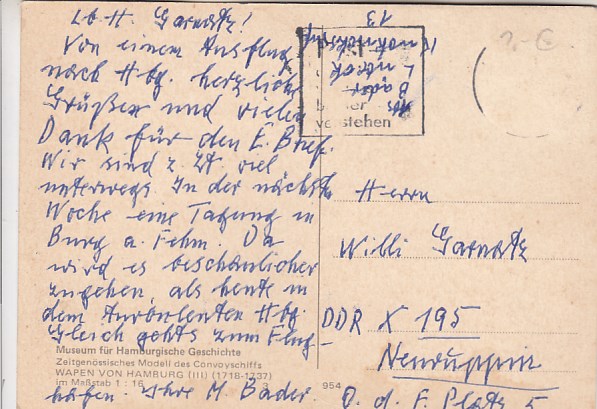 Lb. H. Garnatz!
Von einem Ausflug
nach Hbg. herzliche
Grüße und vielen
Dank für den E. Brief.
Wir sind z. Zt. viel
unterwegs. In der nächste
Woche eine Tagung in
Burg a. Fehm. Da
wird es beschaulicher
zugehen, als heute in
dem turbulenten Hbg.
Gleich gehts zum Flug-
hafen. Ihre M. Bader.
Museum für Hamburgische Geschichte
Zeitgenössisches Modell des Convoyschiffs
WAPEN VON HAMBURG (III) (1718-1737)
im Maßstab 1 : 16
954
13
Bader
verstehen
Herrn
Willi Garnatz
DDR X 195
Neuruppin
O. d. F. Platz 5